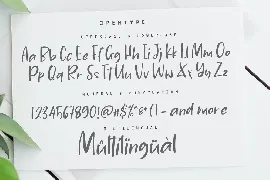 OPENTYPE
UPPERCASE & LOWERCASE
Aa Bb Cc Ee Ff Gg Hh Ii Jj Kk Ll Mm Nn Oo
Pp Qq Rr Ss Tt Uu Vv Ww Xx Yy Zz
NUMERAL & PUNCTUATION
1234567890!@#$%^&*() - and more
MULTILINGUAL
Múltilingüàl